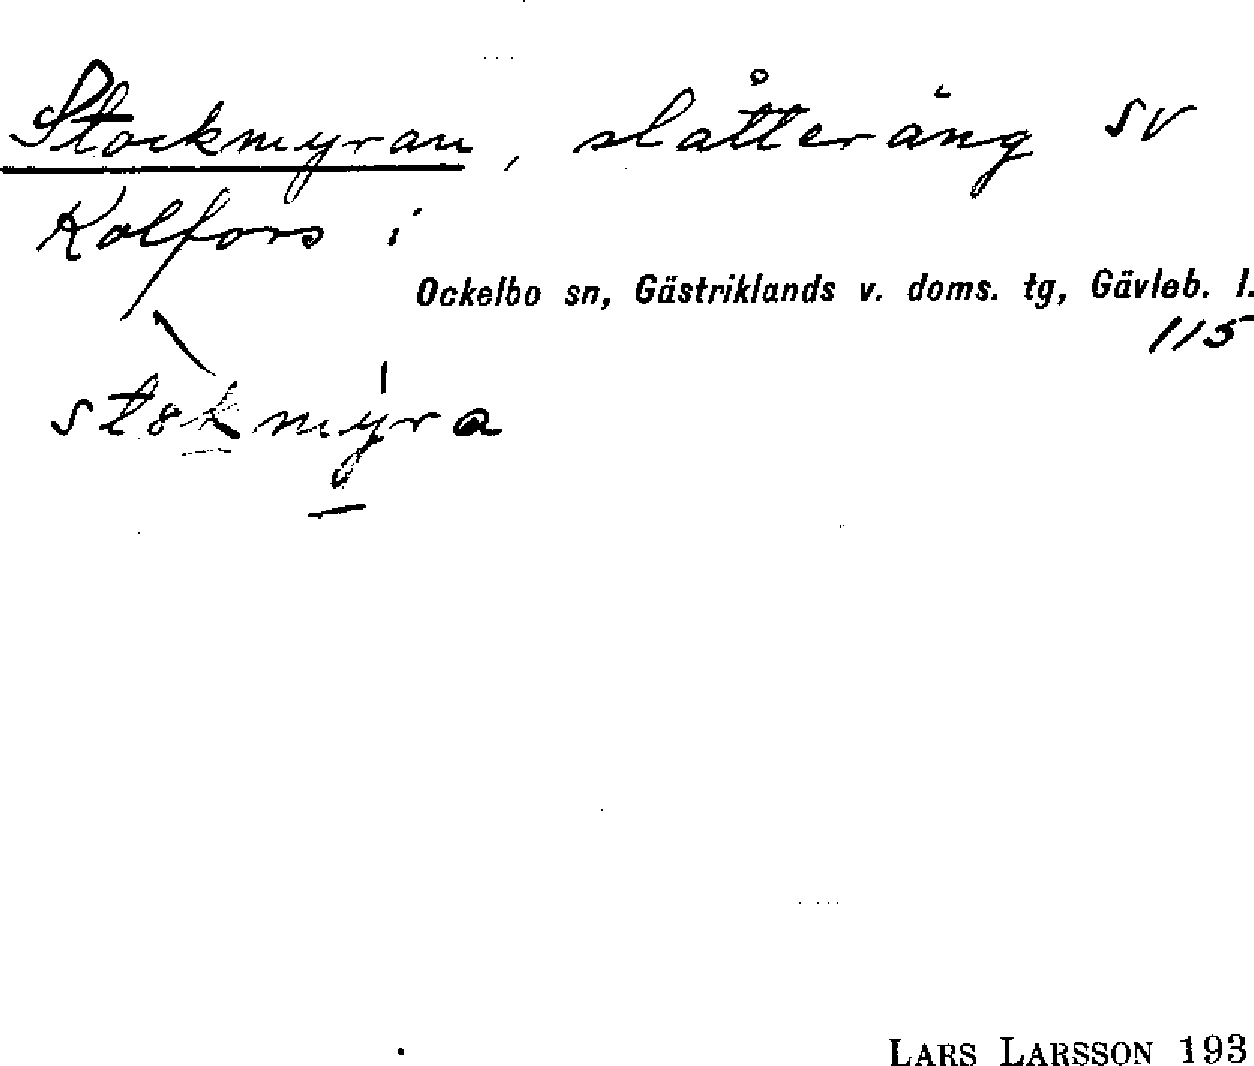 Stockmyran, slåtteräng SV
Kolfors i
Ockelbo sn, Gästriklands v. doms. tg, Gävleb. l.
115
LARS LARSSON 193